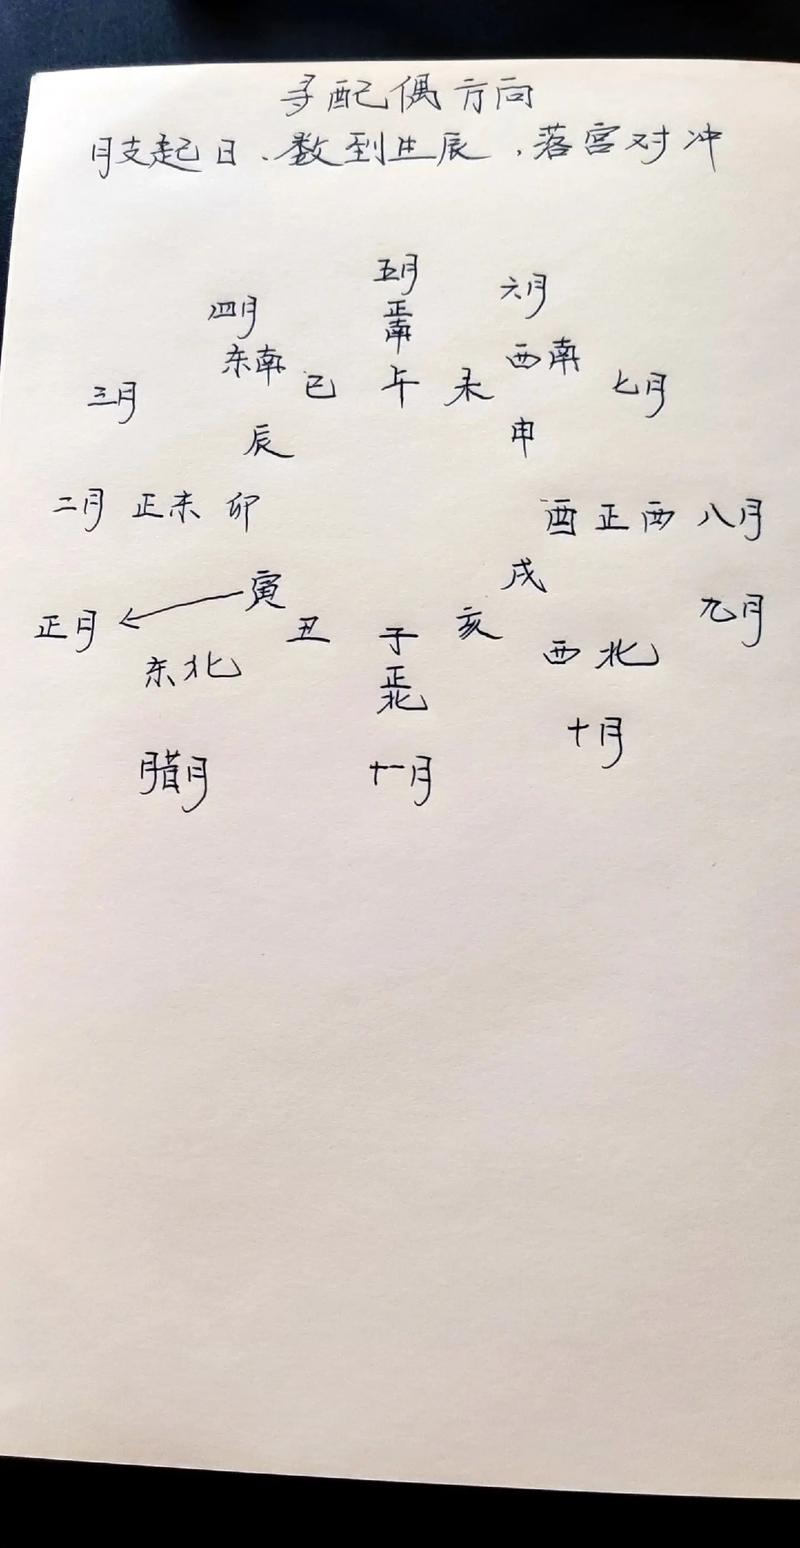 寻配偶方向
月支起日、数到生辰，落宫对冲
五月
四月
六月
正南
东南
西南
三月
巳
午
未
七月
辰
申
二月 正东 卯
酉 正西 八月
寅
戌
正月
丑
子
亥
九月
东北
正北
西北
十月
腊月
十一月